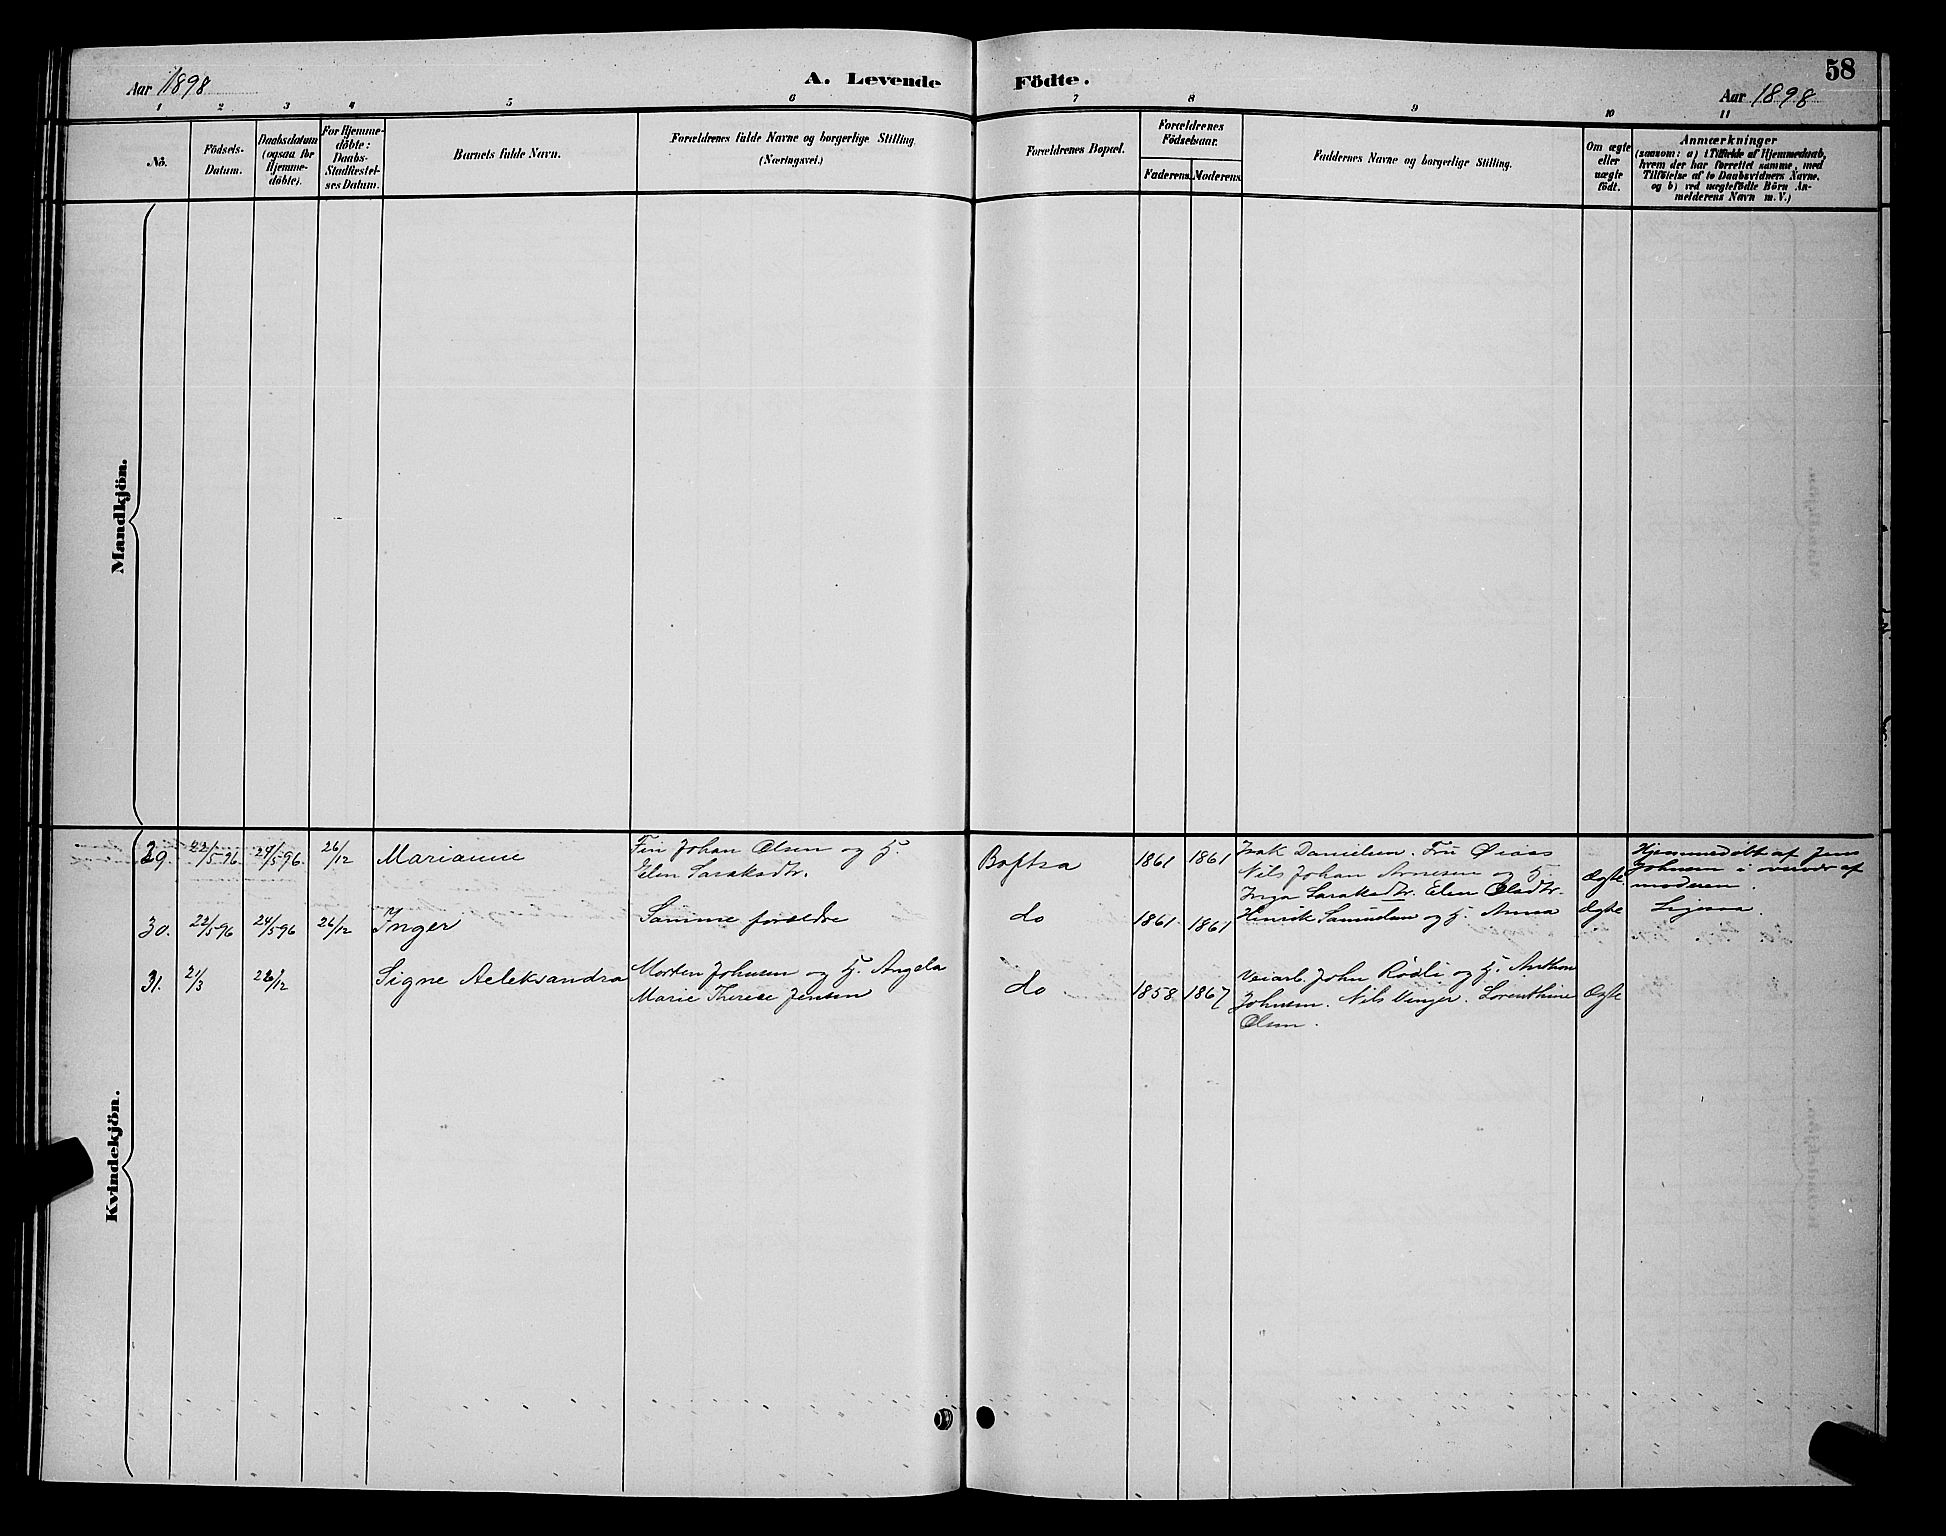 Aar 1898
A. Levende Födte.
58
Aar 1898
1 2 3 4 5 6 7 8 9 10 11
No.
Födsels-
Datum.
Daabsdatum
(ogsaa for
Hjemme-
döbte).
For Hjemme-
döbte:
Daabs-
Stadfæstel-
ses Datum.
Barnets fulde Navn.
Forældrenes fulde Navne og borgerlige Stilling.
(Næringsvei.)
Forældrenes Bopæl.
Forældrenes
Födselsaar.
Faderens. Moderens.
Faddernes Navne og borgerlige Stilling.
Om ægte
eller
uægte
födt.
Anmærkninger
(saasom: a) i Tilfælde af Hjemmedaab,
hvem der har forrettet samme, med
Tilföielse af to Daabsvidners Navne,
og b) ved uægtefödte Börn An-
melderens Navn m. V.)
Mandkjön.
Kvindekjön.
29. 22/5 96 24/5 96. 26/12 Marianne
Fin Johan Olsen og H.
Elen Saraksdtr.
Boftsa 1861 1861
Isak Danielsen. Fru
Nils Johan Arnesen og H.
Inga Saraksdtr. Elen Olsdtr.
Ægte
Hjemmedöbt af Jens
Johnsen i overvær af
moderen.
30. 22/5 96 24/5 96 26/12 Inger Samme forældre do 1861 1861 Henrik Samuelsen og H. Anna Ægte Ligesaa.
31. 21/3 26/12 Signe Aeleksandra
Morten Johnsen og H. Angela
Marie Therese Jensen
do 1858 1867
Veiarb. John Rödli og H. Anthon
Johnsen. Nils Vinger. Lorenthine
Olsen.
Ægte